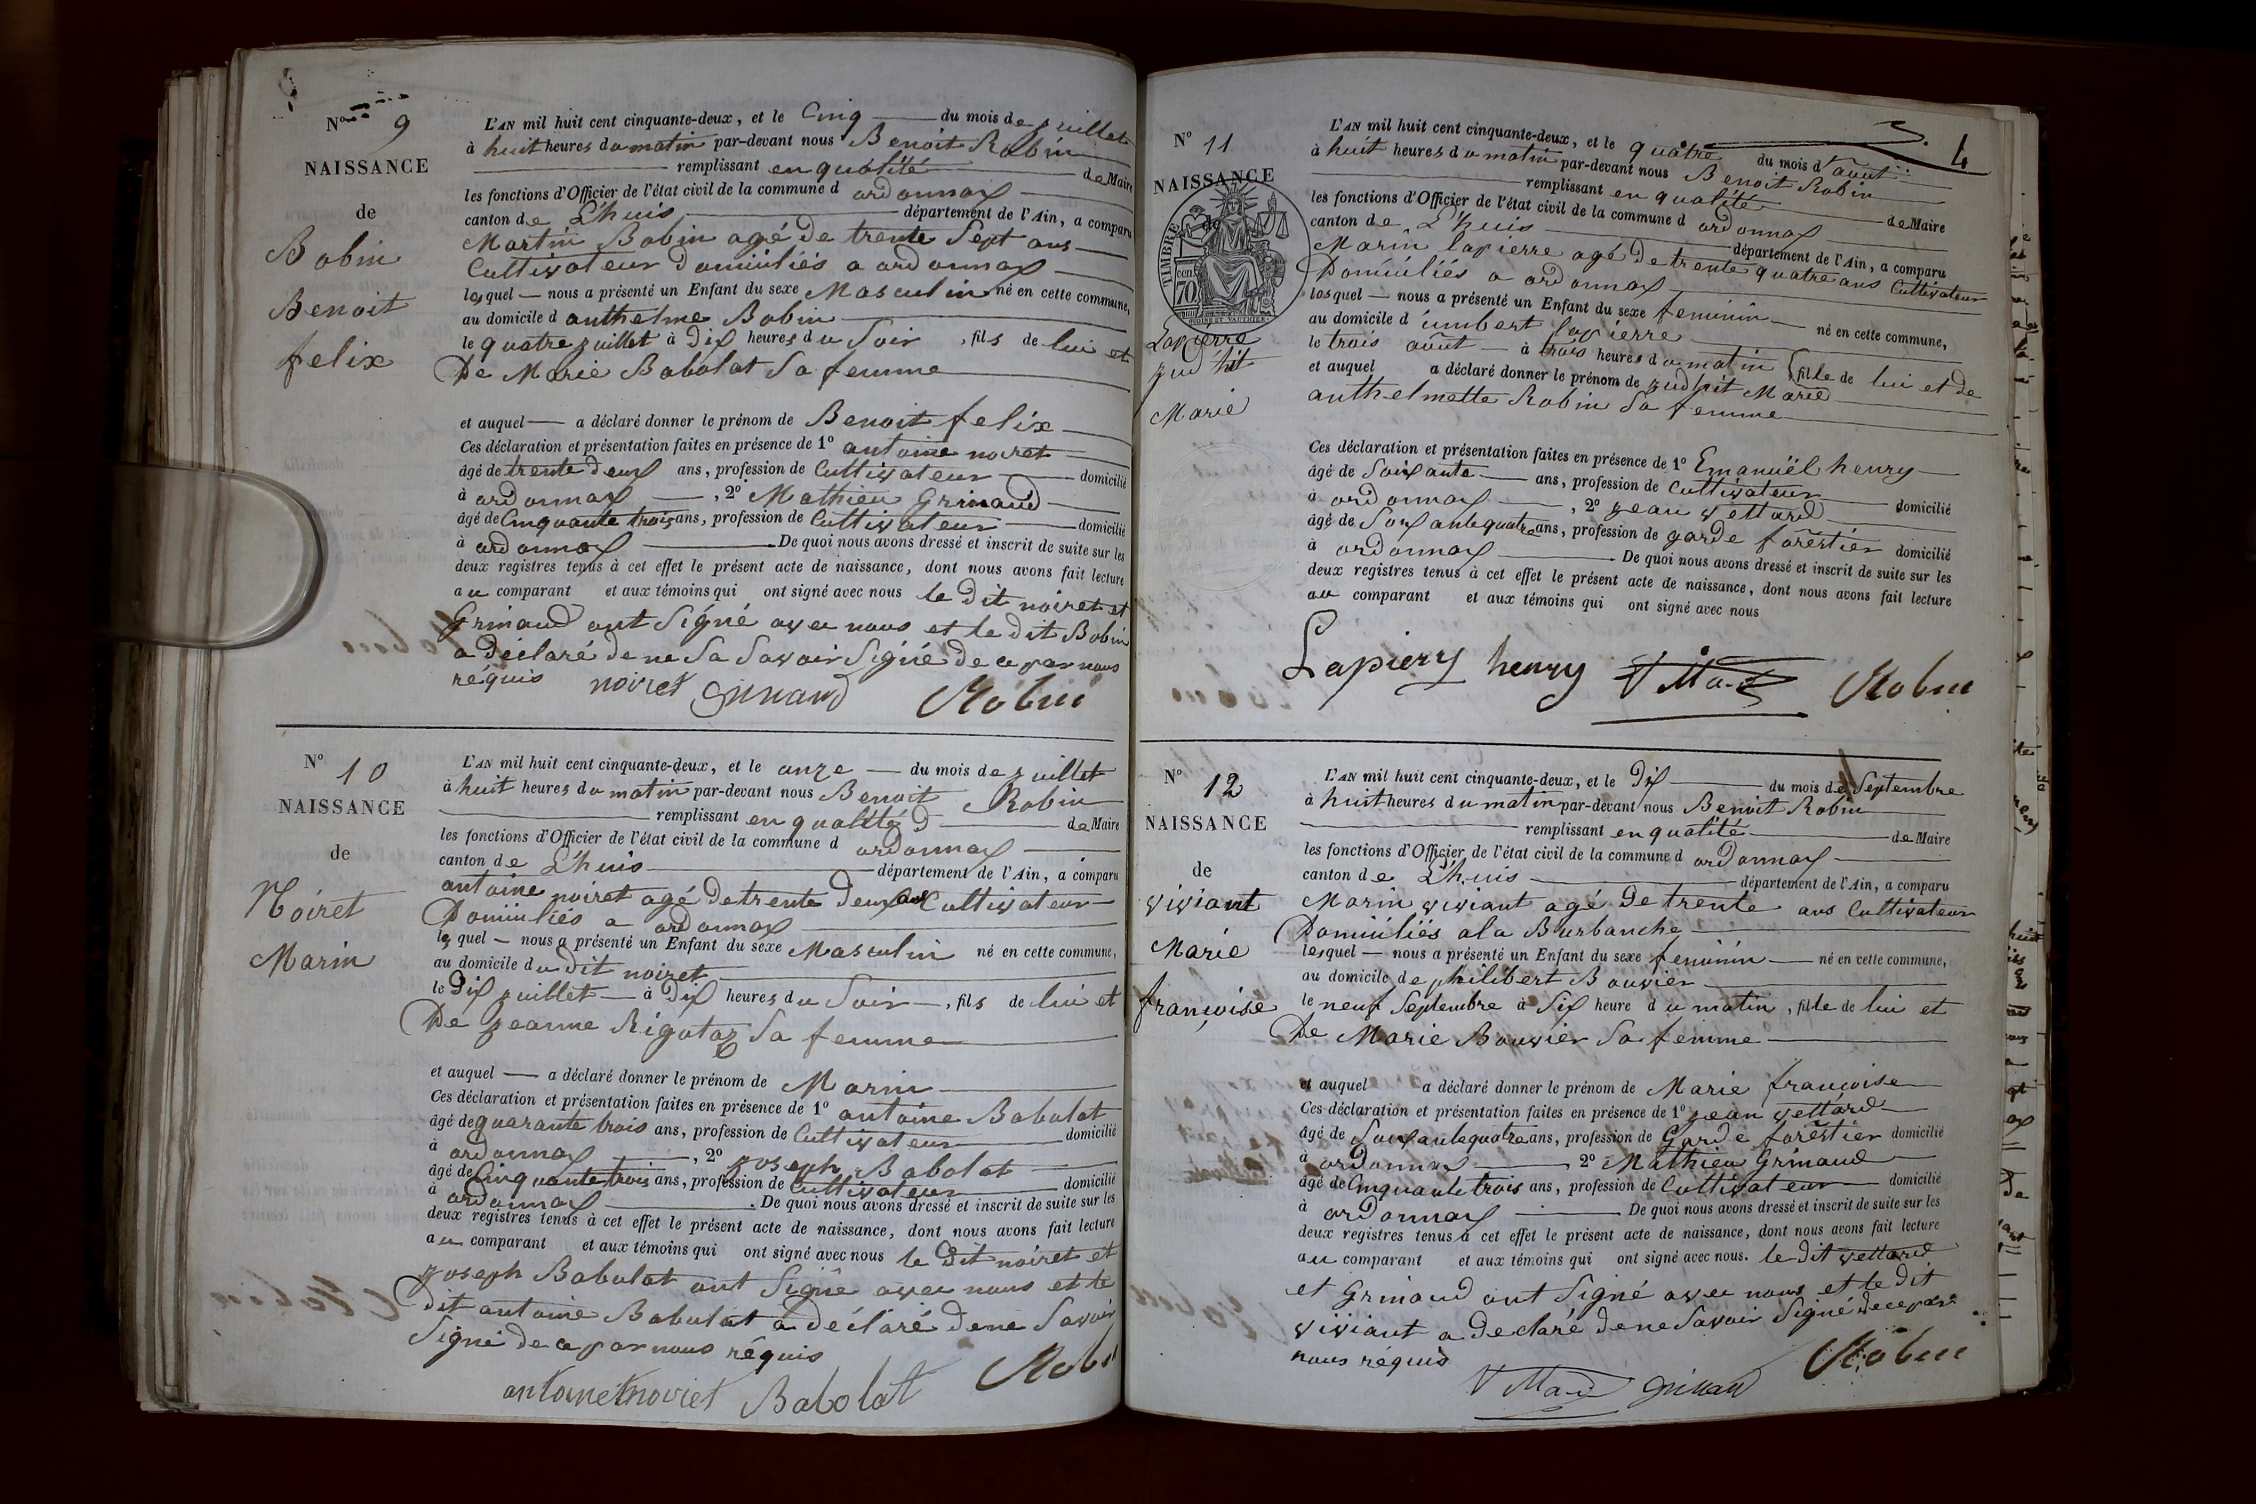 Nº 9
NAISSANCE
de
Bobin
Benoit
felix
L'AN mil huit cent cinquante-deux, et le Cinq du mois de juillet
à huit heures du matin par-devant nous Benoit Robin
remplissant en qualité de Maire
les fonctions d'Officier de l'état civil de la commune d ordonnax
canton de L'huis département de l'Ain, a comparu
Martin Bobin agé de trente Sept ans
Cultivateur Domiciliés a ordonnax
lequel nous a présenté un Enfant du sexe Masculin né en cette commune,
au domicile d anthelme Bobin
le quatre juillet à Dix heures du Soir, fils de lui et
De Marie Babolat Sa femme
et auquel a déclaré donner le prénom de Benoit felix
Ces déclaration et présentation faites en présence de 1º antoine noiret
âgé de trente deux ans, profession de Cultivateur domicilié
à ordonnax, 2º Mathieu Grinaud
âgé de Cinquante trois ans, profession de Cultivateur domicilié
à ordonnax. De quoi nous avons dressé et inscrit de suite sur les
deux registres tenus à cet effet le présent acte de naissance, dont nous avons fait lecture
au comparant et aux témoins qui ont signé avec nous le dit noiret et
Grinaud ont Signé avec nous et le dit Bobin
a déclaré de ne Sa Savoir Signé de ce par nous
réquis
noiret Grinaud Robin
Nº 10
NAISSANCE
de
Noiret
Marin
L'AN mil huit cent cinquante-deux, et le onze du mois de juillet
à huit heures du matin par-devant nous Benoit Robin
remplissant en qualité d de Maire
les fonctions d'Officier de l'état civil de la commune d ordonnax
canton de L'huis département de l'Ain, a comparu
antoine noiret agé de trente Deux ans Cultivateur
Domiciliés a ordonnax
lequel nous a présenté un Enfant du sexe Masculin né en cette commune,
au domicile du dit noiret
le Dix juillet à Dix heures du Soir, fils de lui et
De jeanne Rigotaz Sa femme
et auquel a déclaré donner le prénom de Marin
Ces déclaration et présentation faites en présence de 1º antoine Babolat
âgé de quarante trois ans, profession de Cultivateur domicilié
à ordonnax, 2º joseph Babolat
âgé de Cinquante trois ans, profession de Cultivateur domicilié
à ordonnax. De quoi nous avons dressé et inscrit de suite sur les
deux registres tenus à cet effet le présent acte de naissance, dont nous avons fait lecture
au comparant et aux témoins qui ont signé avec nous le dit noiret et
joseph Babolat ont Signé avec nous et le
dit antoine Babolat a déclaré de ne Savoir
Signé de ce par nous réquis
antoine noiret Babolat Robin
4
Nº 11
NAISSANCE
de
TIMBRE
cen. 70
Lapierre
judhit
Marie
L'AN mil huit cent cinquante-deux, et le quatre du mois d'août
à huit heures du matin par-devant nous Benoit Robin
remplissant en qualité de Maire
les fonctions d'Officier de l'état civil de la commune d ordonnax
canton de L'huis département de l'Ain, a comparu
Marin lapierre agé de trente quatre ans Cultivateur
Domiciliés a ordonnax
lequel nous a présenté un Enfant du sexe feminin né en cette commune,
au domicile d'umbert lapierre
le trois août à trois heures du matin fille de lui et de
et auquel a déclaré donner le prénom de judhit Marie
anthelmette Robin Sa femme
Ces déclaration et présentation faites en présence de 1º Emanuël henry
âgé de Soixante ans, profession de Cultivateur domicilié
à ordonnax, 2º jean vettard
âgé de Soixante quatre ans, profession de garde forêstier domicilié
à ordonnax. De quoi nous avons dressé et inscrit de suite sur les
deux registres tenus à cet effet le présent acte de naissance, dont nous avons fait lecture
au comparant et aux témoins qui ont signé avec nous
Lapiery henry Robin
Nº 12
NAISSANCE
de
viviant
Marie
françoise
L'AN mil huit cent cinquante-deux, et le Dix du mois de Septembre
à huit heures du matin par-devant nous Benoit Robin
remplissant en qualité de Maire
les fonctions d'Officier de l'état civil de la commune d ordonnax
canton de L'huis département de l'Ain, a comparu
Marin viviant agé De trente ans Cultivateur
Domiciliés a la Burbanche
lequel nous a présenté un Enfant du sexe feminin né en cette commune,
au domicile de philibert Bouvier
le neuf Septembre à Six heure du matin, fille de lui et
De Marie Bouvier Sa femme
et auquel a déclaré donner le prénom de Marie françoise
Ces déclaration et présentation faites en présence de 1º jean vettard
âgé de Soixante quatre ans, profession de Garde forêstier domicilié
à ordonnax 2º Mathieu Grinaud
âgé de Cinquante trois ans, profession de Cultivateur domicilié
à ordonnax. De quoi nous avons dressé et inscrit de suite sur les
deux registres tenus à cet effet le présent acte de naissance, dont nous avons fait lecture
au comparant et aux témoins qui ont signé avec nous. le dit vettard
et Grinaud ont Signé avec nous et le dit
viviant a déclaré de ne Savoir Signé de ce par
nous réquis
grinaud Robin